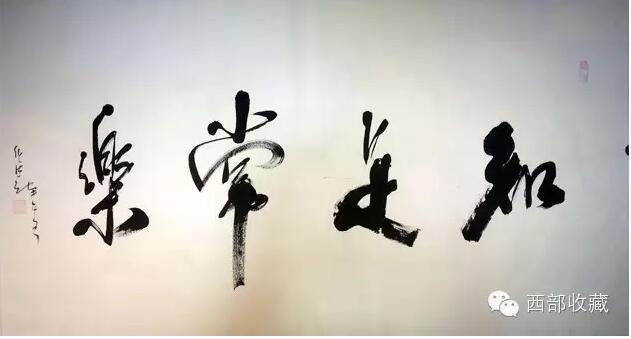 知足常樂
西部收藏